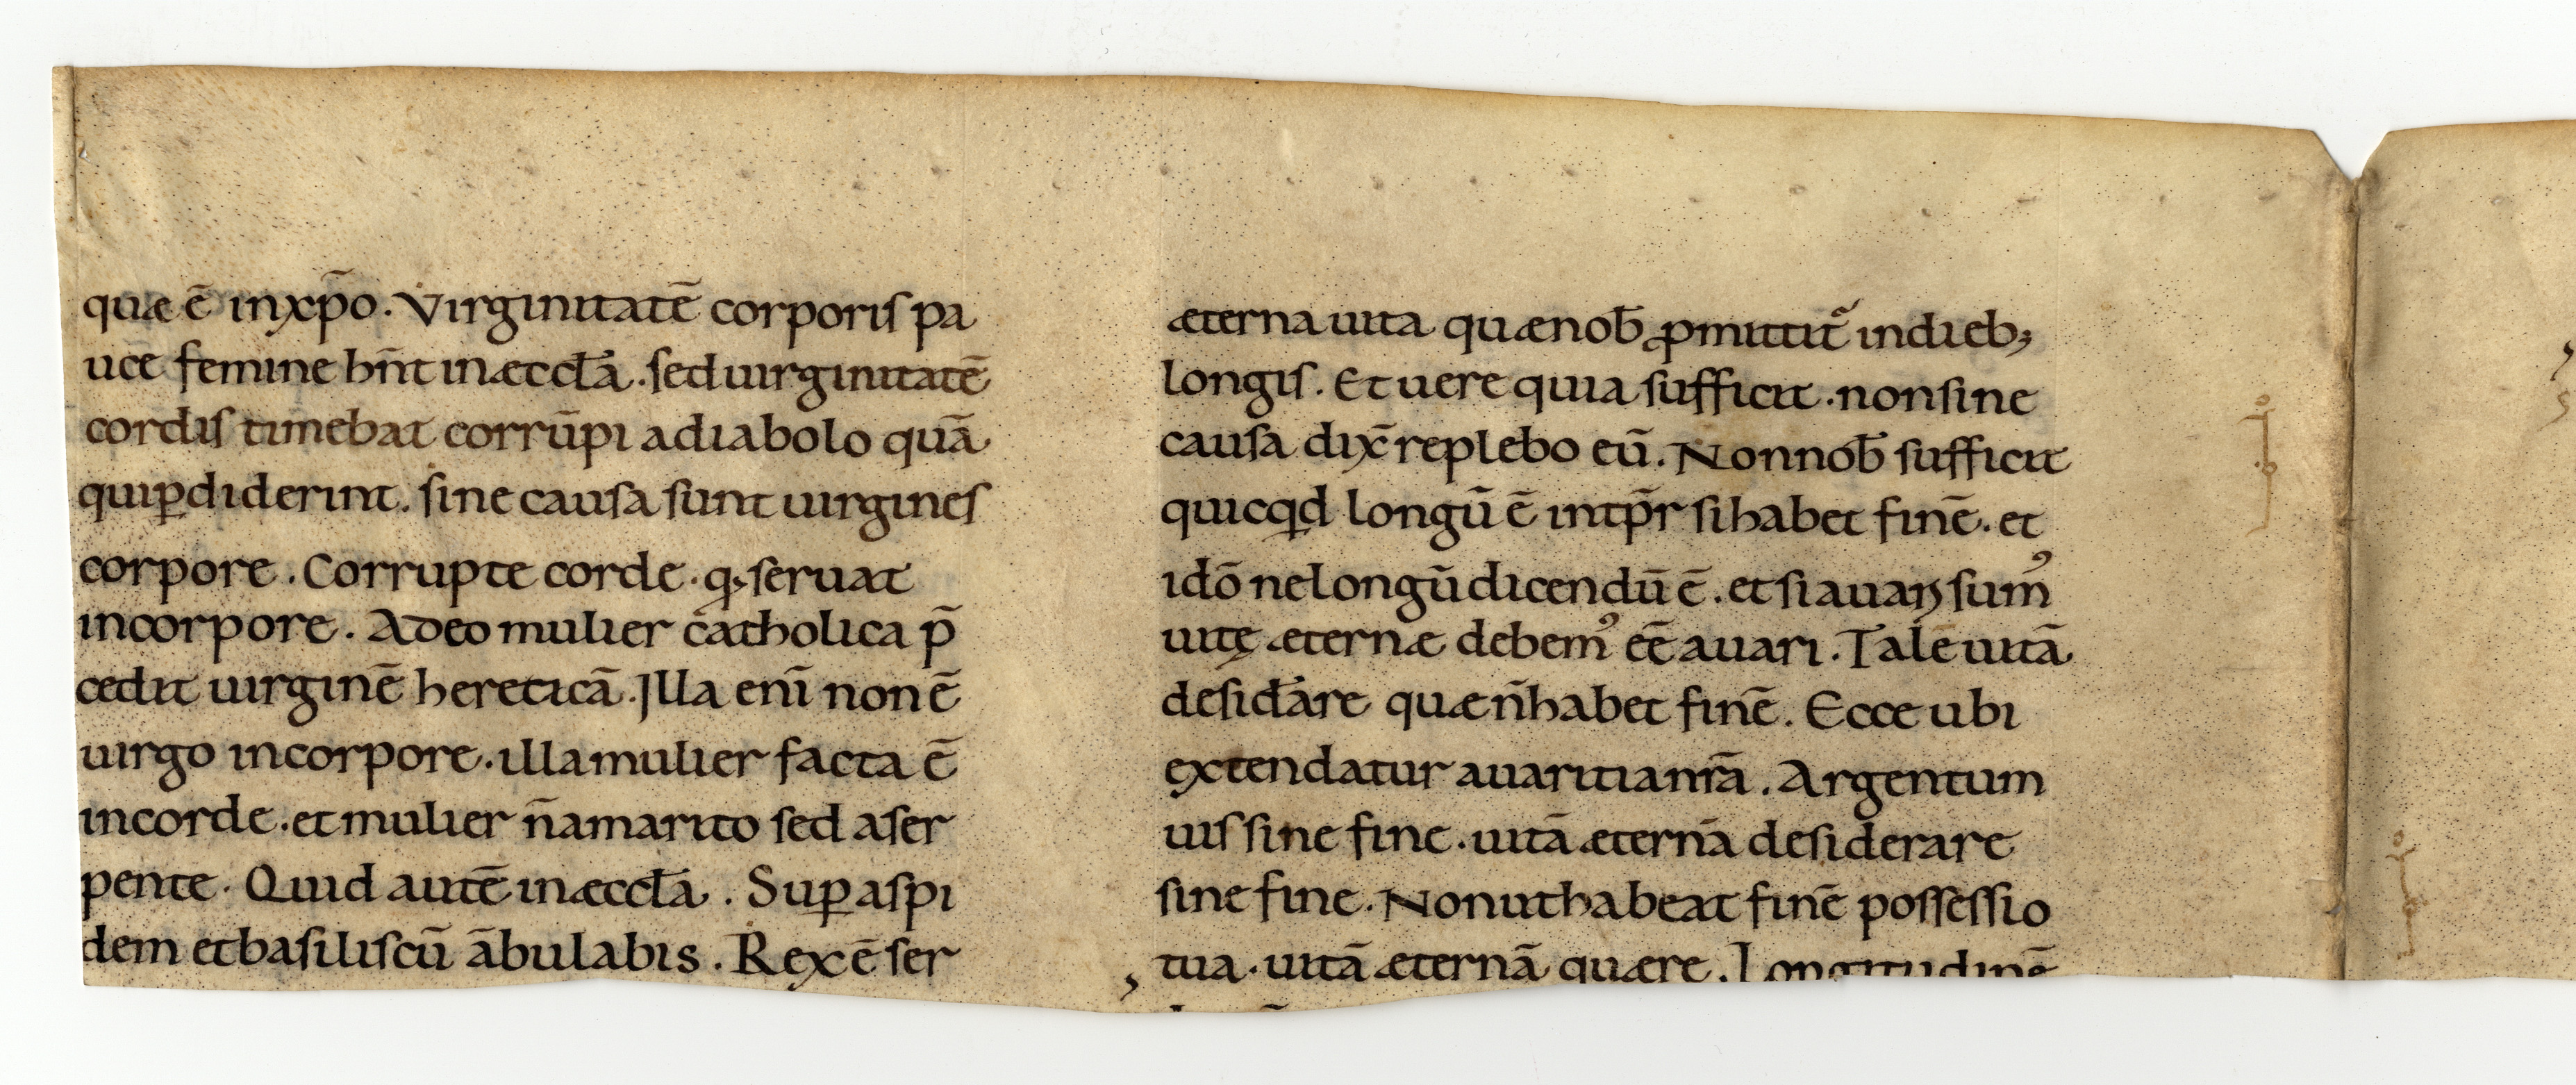 quæ ē inxp̄o. Virginitatē corporis pa
uce femine hn̄t inæccƚa. sed uirginitatē
cordis timebat corrūpi adiabolo quā
quiꝑdiderint. sine causa sunt uirgines
corpore. Corrupte corde. qđ seruat
incorpore. Adeo mulier catholica p̄
cedit uirginē hereticā. Illa enī non ē
uirgo incorpore. illa mulier facta ē
incorde. et mulier n̄ amarito sed aser
pente. Quid autē inæccƚa. Suꝑ aspi
dem et basiliscū ābulabis. Rex ē ser
æterna uita quæ nob̄ ꝓmittit᷑ indieb;
longis. Et uere quia sufficit. non sine
causa dix̄ replebo eū. Non nob̄ sufficit
quicqd longū ē intp̄r si habet finē. et
idō ne longū dicendū ē. et si auari sum᾽
uitę æternæ debem᾽ eē auari. Talē uitā
desiđare quæ n̄ habet finē. Ecce ubi
extendatur auaritia nr̄a. Argentum
uis sine fine. uitā æternā desiderare
sine fine. Non ut habeat finē possessio
tua. uitā æternā quære. Longitudinē